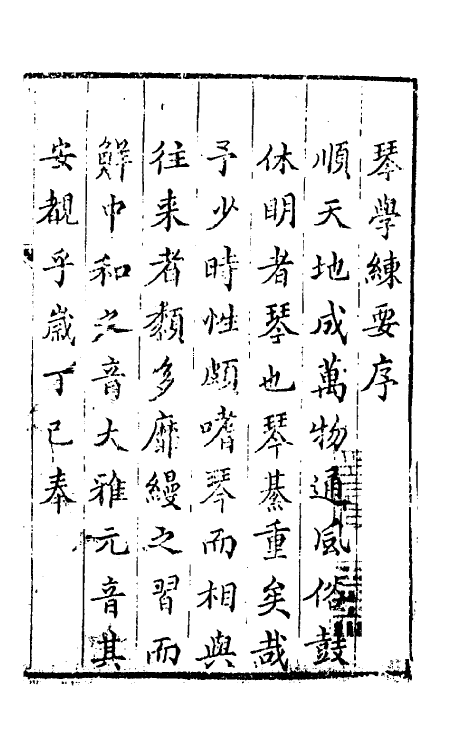 琴學練要序
順天地成萬物通風俗鼓
休明者琴也琴綦重矣哉
予少時性頗嗜琴而相與
往来者類多靡縵之習而
鮮中和之音大雅元音其
安覩乎嵗丁巳奉